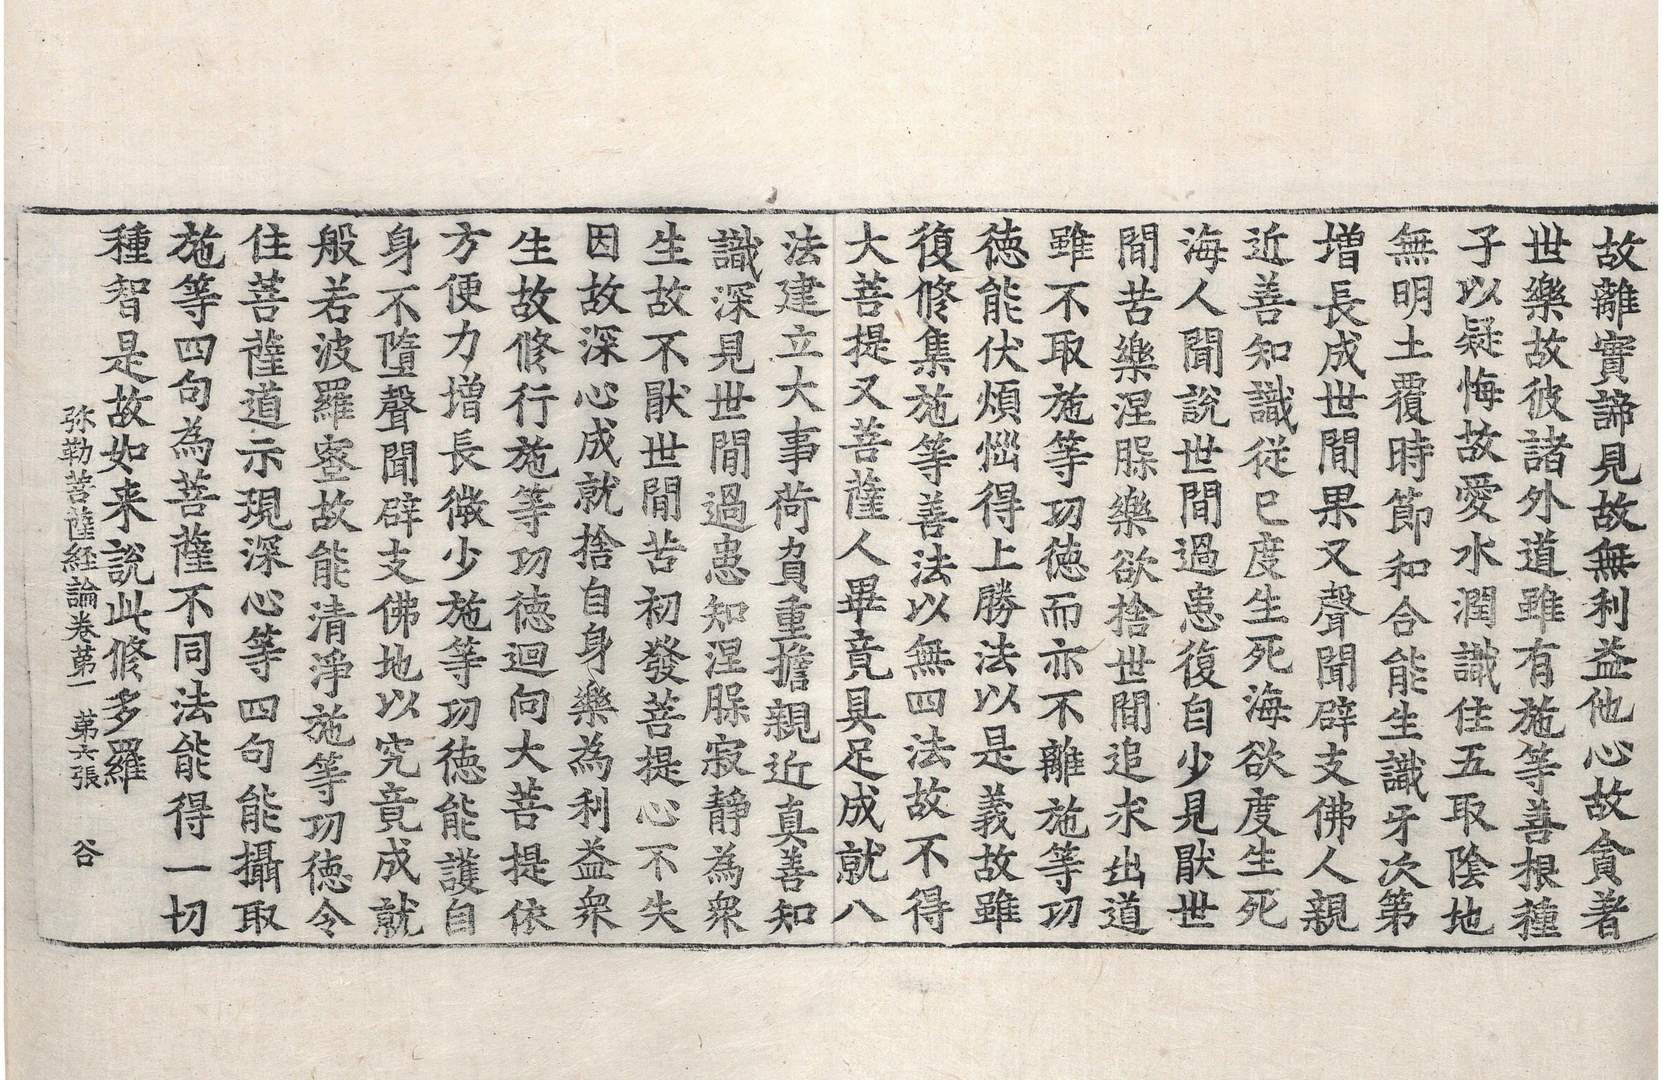 故離實諦見故無利益他心故貪著
世樂故彼諸外道雖有施等善根種
子以疑悔故愛水潤識住五取陰地
無明土覆時節和合能生識牙次第
增長成世間果又聲聞辟支佛人親
近善知識從已度生死海欲度生死
海人聞說世間過患復自少見猒世
間苦樂涅槃樂欲捨世間追求出道
雖不取施等功德而亦不離施等功
德能伏煩惱得上勝法以是義故雖
復修集施等善法以無四法故不得
大菩提又菩薩人畢竟具足成就八
法建立大事荷負重擔親近真善知
識深見世間過患知涅槃寂靜為衆
生故不猒世間苦初發菩提心不失
因故深心成就捨自身樂為利益衆
生故修行施等功德迴向大菩提依
方便力增長微少施等功德能護自
身不墮聲聞辟支佛地以究竟成就
般若波羅蜜故能清淨施等功德令
住菩薩道示現深心等四句能攝取
施等四句為菩薩不同法能得一切
種智是故如来說此修多羅
弥勒菩薩経論卷第一　第六張　谷